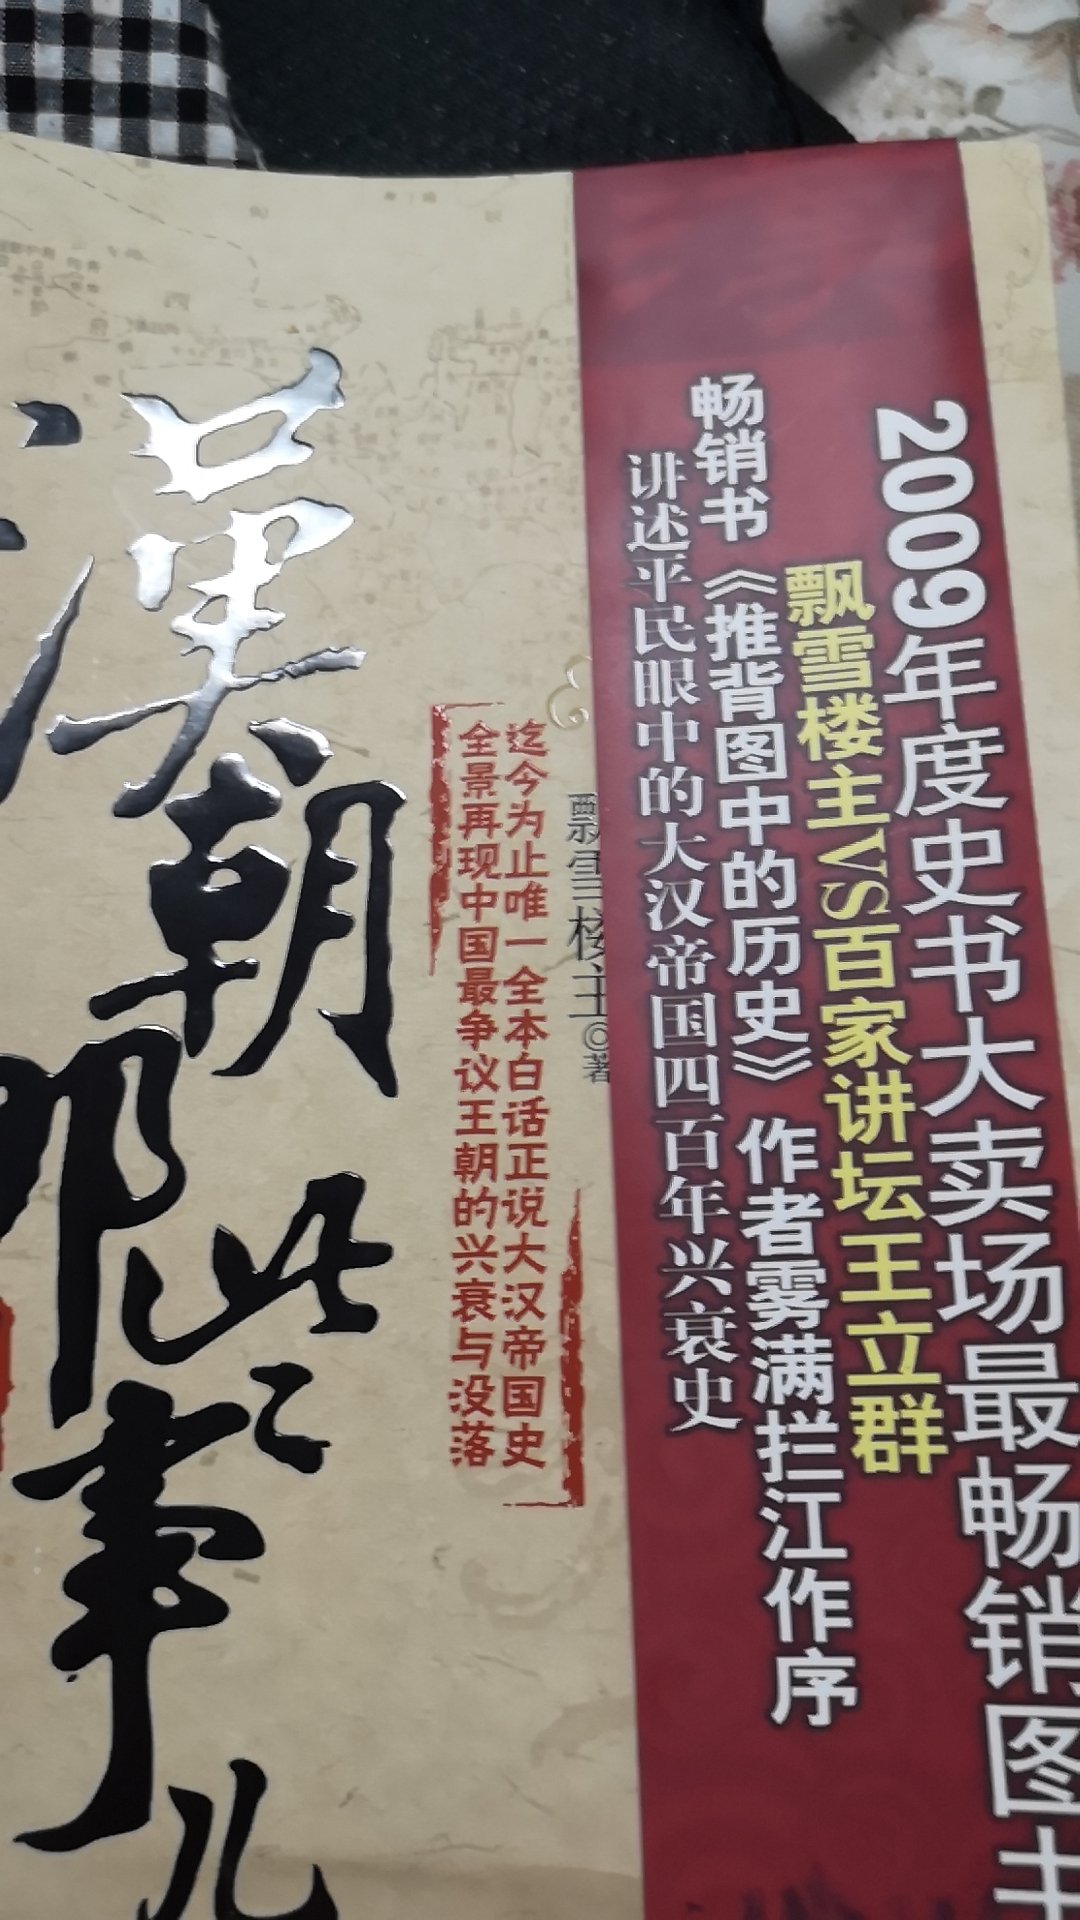 2009年度史书大卖场最畅销图书
飘雪楼主VS百家讲坛王立群
畅销书《推背图中的历史》作者雾满拦江作序
讲述平民眼中的大汉帝国四百年兴衰史
飘雪楼主◎著
迄今为止唯一全本白话正说大汉帝国史
全景再现中国最争议王朝的兴衰与没落
漢朝那些事儿